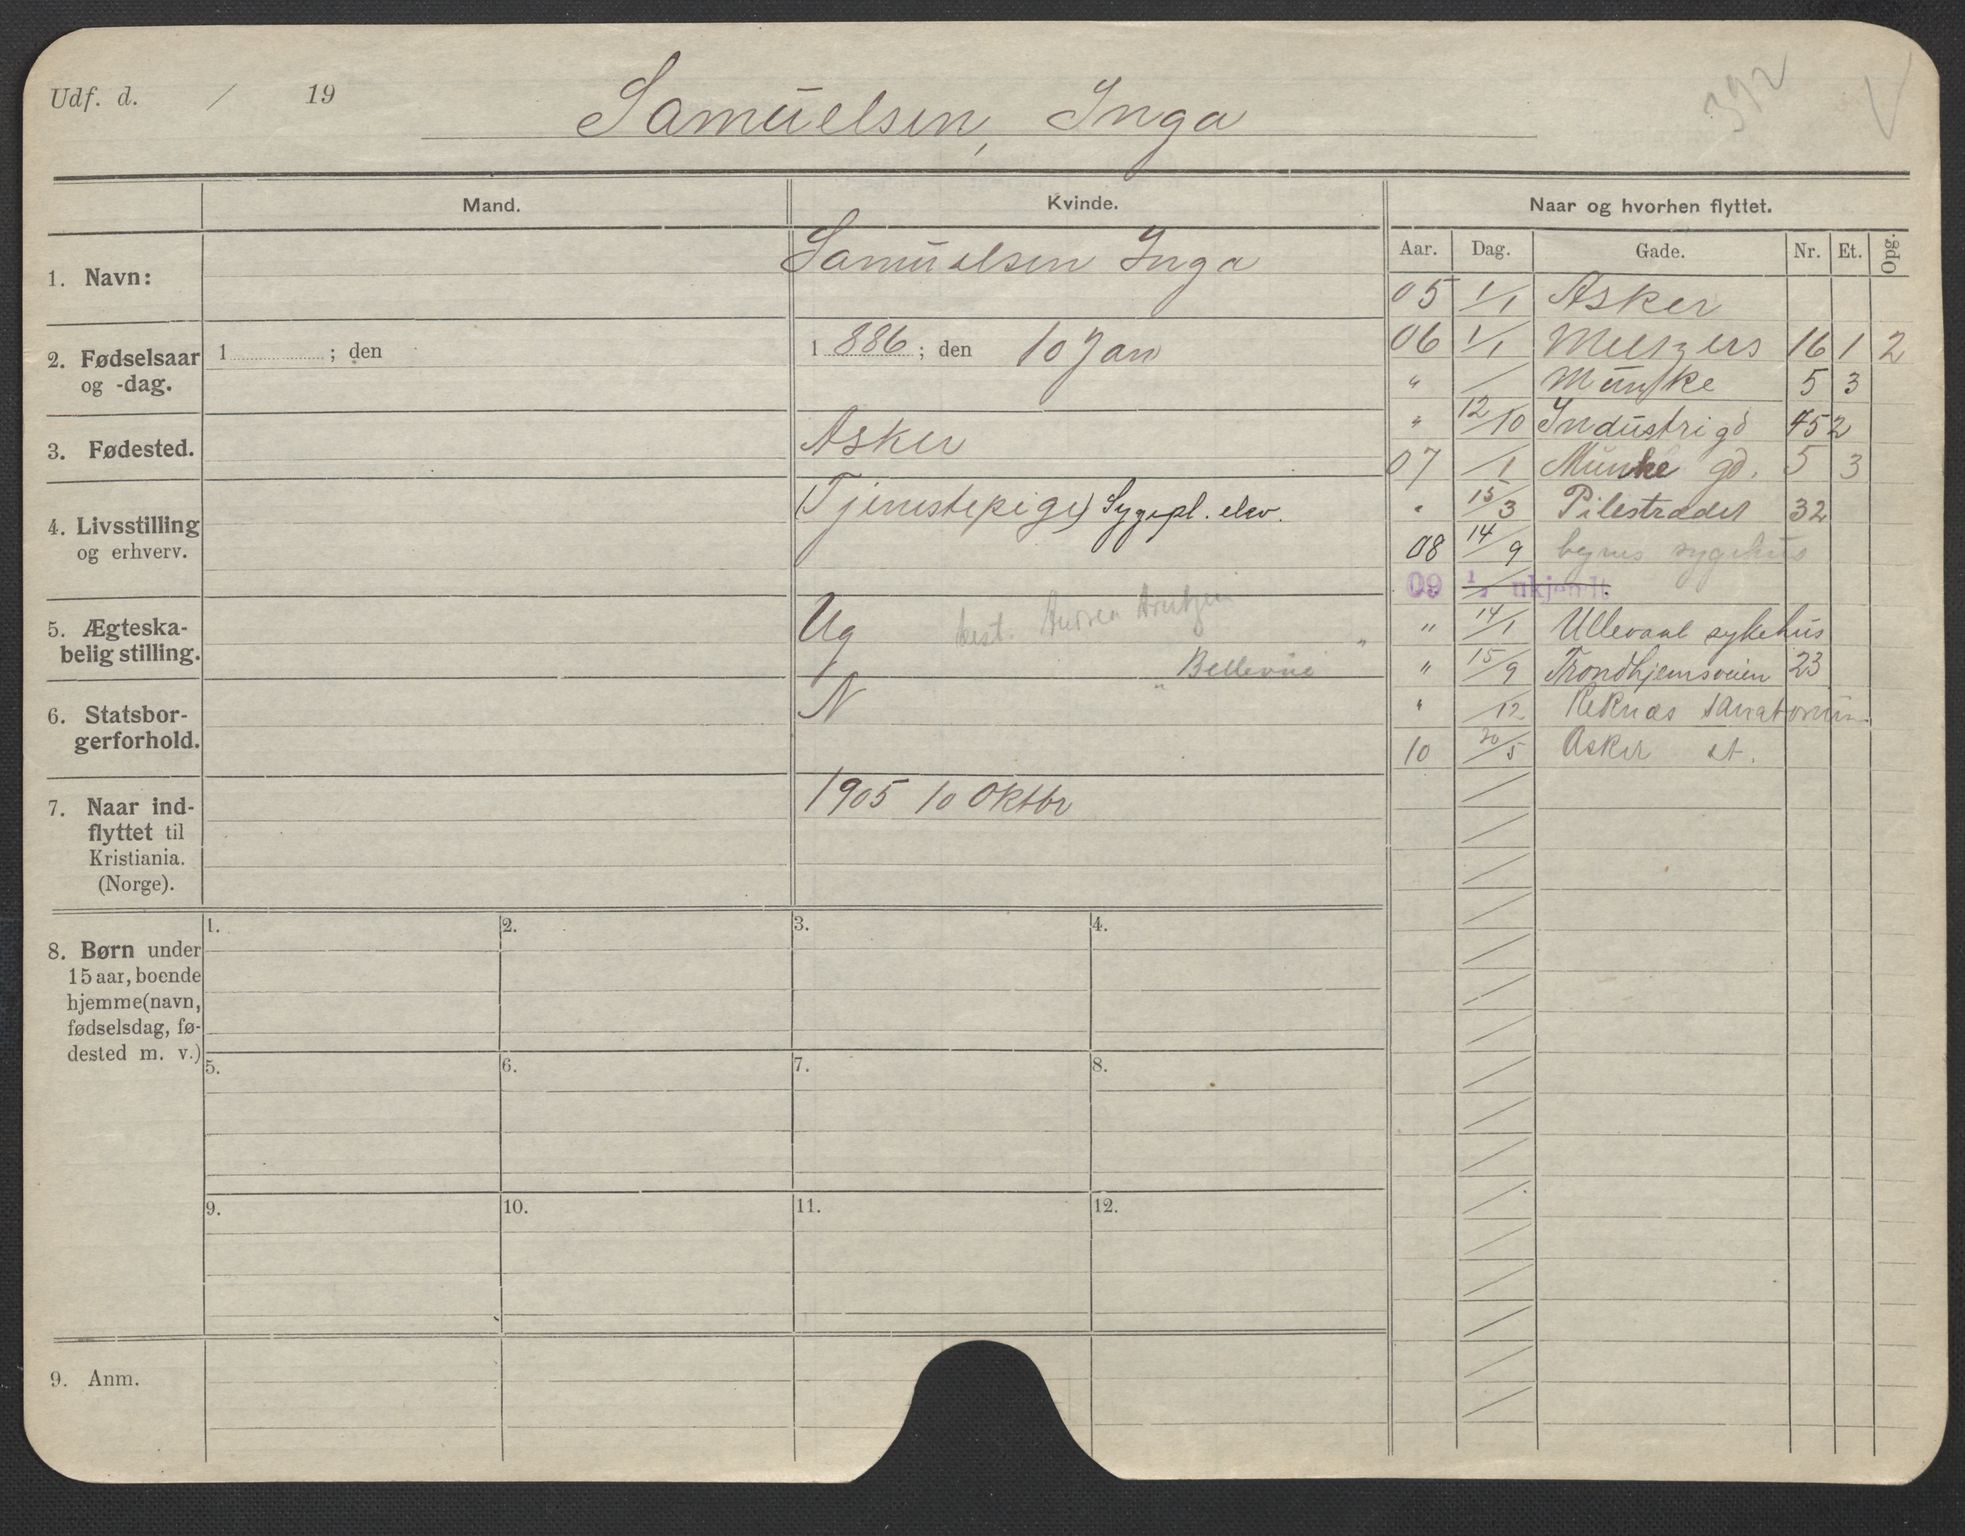 Udf. d. / 19
Samuelsen, Inga
392
Mand.
Kvinde.
Naar og hvorhen flyttet.
Aar. Dag. Gade. Nr. Et. Opg.
1. Navn:
Samuelsen Inga
2. Fødselsaar
og -dag.
1 ; den
1 886 ; den 10 Jan
3. Fødested.
Asker
4. Livsstilling
og erhverv.
(Tjenestepige) Sygepl. elev.
5. Ægteska-
belig stilling.
Ug best. Andrea Arntzen "
" Bellevue
6. Statsbor-
gerforhold.
N
7. Naar ind-
flyttet til
Kristiania.
(Norge).
1905 10 Oktbr
05 1/1 Asker
06 1/1 Meltzers 16 1 2
" / Munke 5 3
" 12/10 Industrigd 45 2
07 /1 Munke gd. 5 3
" 15/3 Pilestrædet 32
08 14/9 byens sygehus
09 1/1 ukjendt
" 14/1 Ullevaal sykehus
" 15/9 Trondhjemsveien 23
" /12 Reknæs sanatorium
10 20/5 Asker st.
8. Børn under
15 aar, boende
hjemme (navn,
fødselsdag, fø-
dested m. v.)
1. 2. 3. 4.
5. 6. 7. 8.
9. 10. 11. 12.
9. Anm.